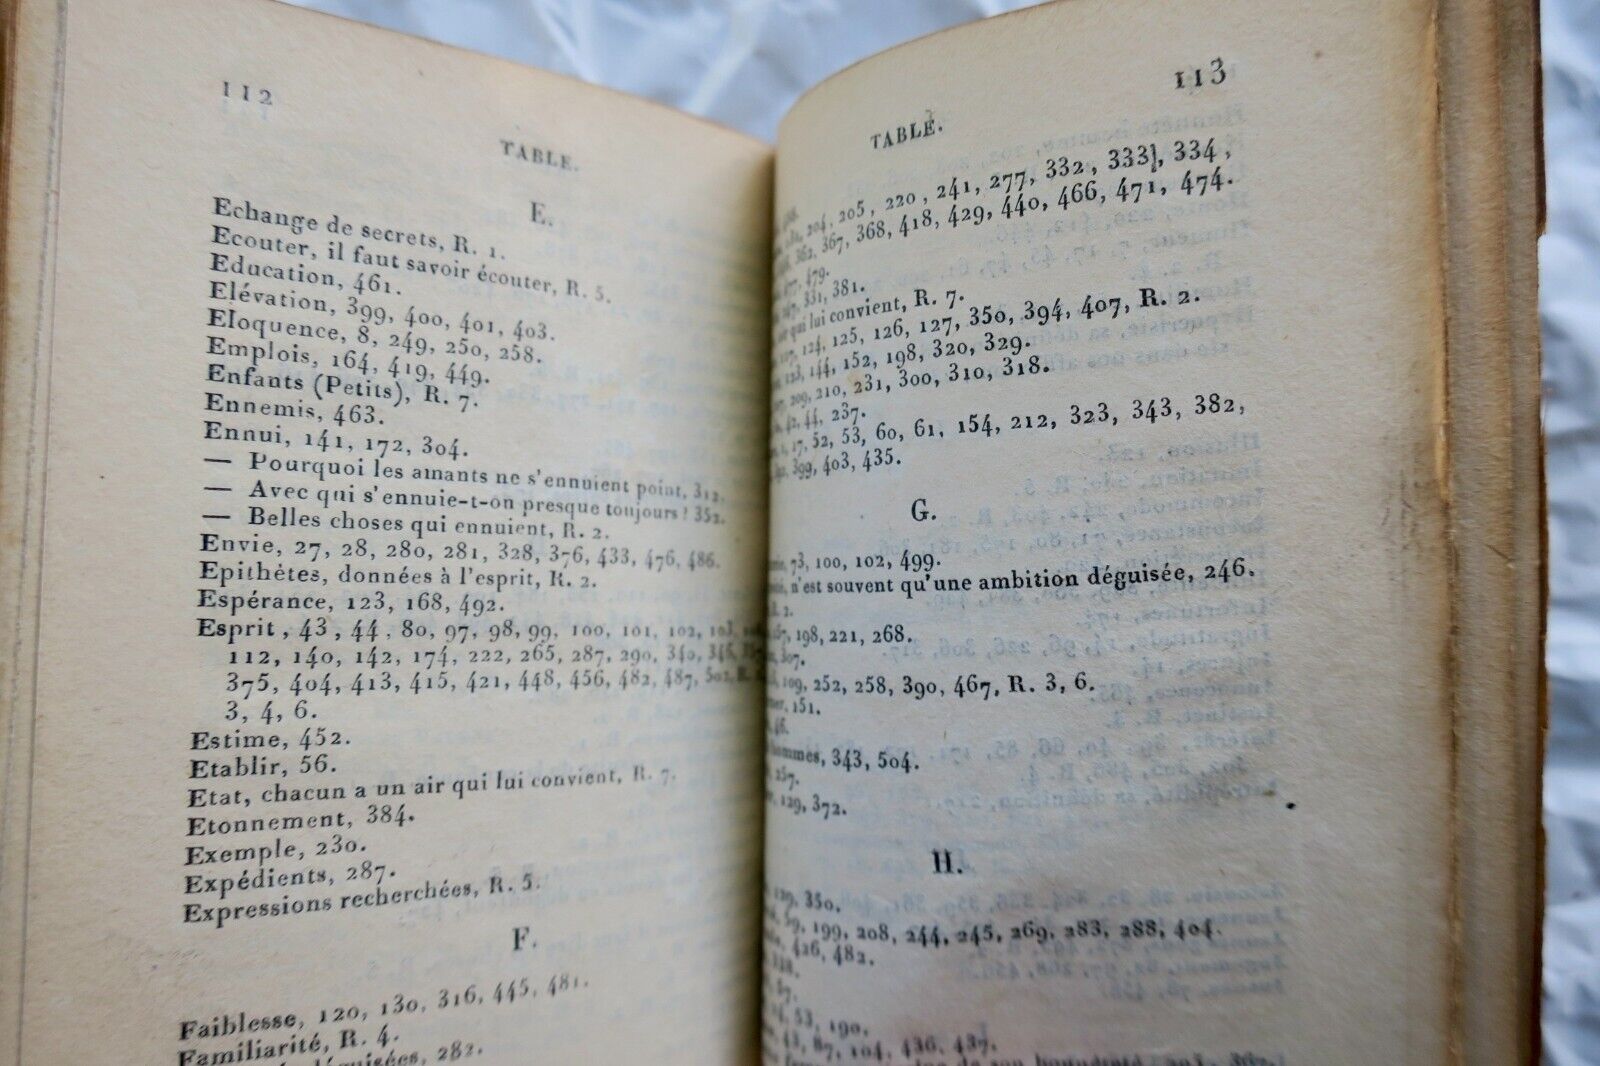 112
TABLE.
E.
Echange de secrets, R. 1.
Ecouter, il faut savoir écouter, R. 5.
Education, 461.
Elévation, 399, 400, 401, 403.
Eloquence, 8, 249, 250, 258.
Emplois, 164, 419, 449.
Enfants (Petits), R. 7.
Ennemis, 463.
Ennui, 141, 172, 304.
— Pourquoi les amants ne s'ennuient point, 312.
— Avec qui s'ennuie-t-on presque toujours? 352.
— Belles choses qui ennuient, R. 2.
Envie, 27, 28, 280, 281, 328, 376, 433, 476, 486.
Epithètes, données à l'esprit, R. 2.
Espérance, 123, 168, 492.
Esprit, 43, 44, 80, 97, 98, 99, 100, 101, 102, 103,
112, 140, 142, 174, 222, 265, 287, 290, 340, 346,
375, 404, 413, 415, 421, 448, 456, 482, 487, 502, R.
3, 4, 6.
Estime, 452.
Etablir, 56.
Etat, chacun a un air qui lui convient, R. 7.
Etonnement, 384.
Exemple, 230.
Expédients, 287.
Expressions recherchées, R. 5.
F.
Faiblesse, 120, 130, 316, 445, 481.
Familiarité, R. 4.
282.
113
TABLE.
204, 205, 220, 241, 277, 332, 333, 334,
362, 367, 368, 418, 429, 440, 466, 471, 474.
479.
331, 381.
qui lui convient, R. 7.
124, 125, 126, 127, 350, 394, 407, R. 2.
144, 152, 198, 320, 329.
209, 210, 231, 300, 310, 318.
42, 44, 237.
17, 52, 53, 60, 61, 154, 212, 323, 343, 382,
399, 403, 435.
G.
73, 100, 102, 499.
n'est souvent qu'une ambition déguisée, 246.
2.
198, 221, 268.
307.
109, 252, 258, 390, 467, R. 3, 6.
151.
46.
hommes, 343, 504.
129, 372.
H.
129, 350.
199, 208, 244, 245, 269, 283, 288, 404.
426, 482.
53, 190.
43, 87, 104, 436, 437.
de son